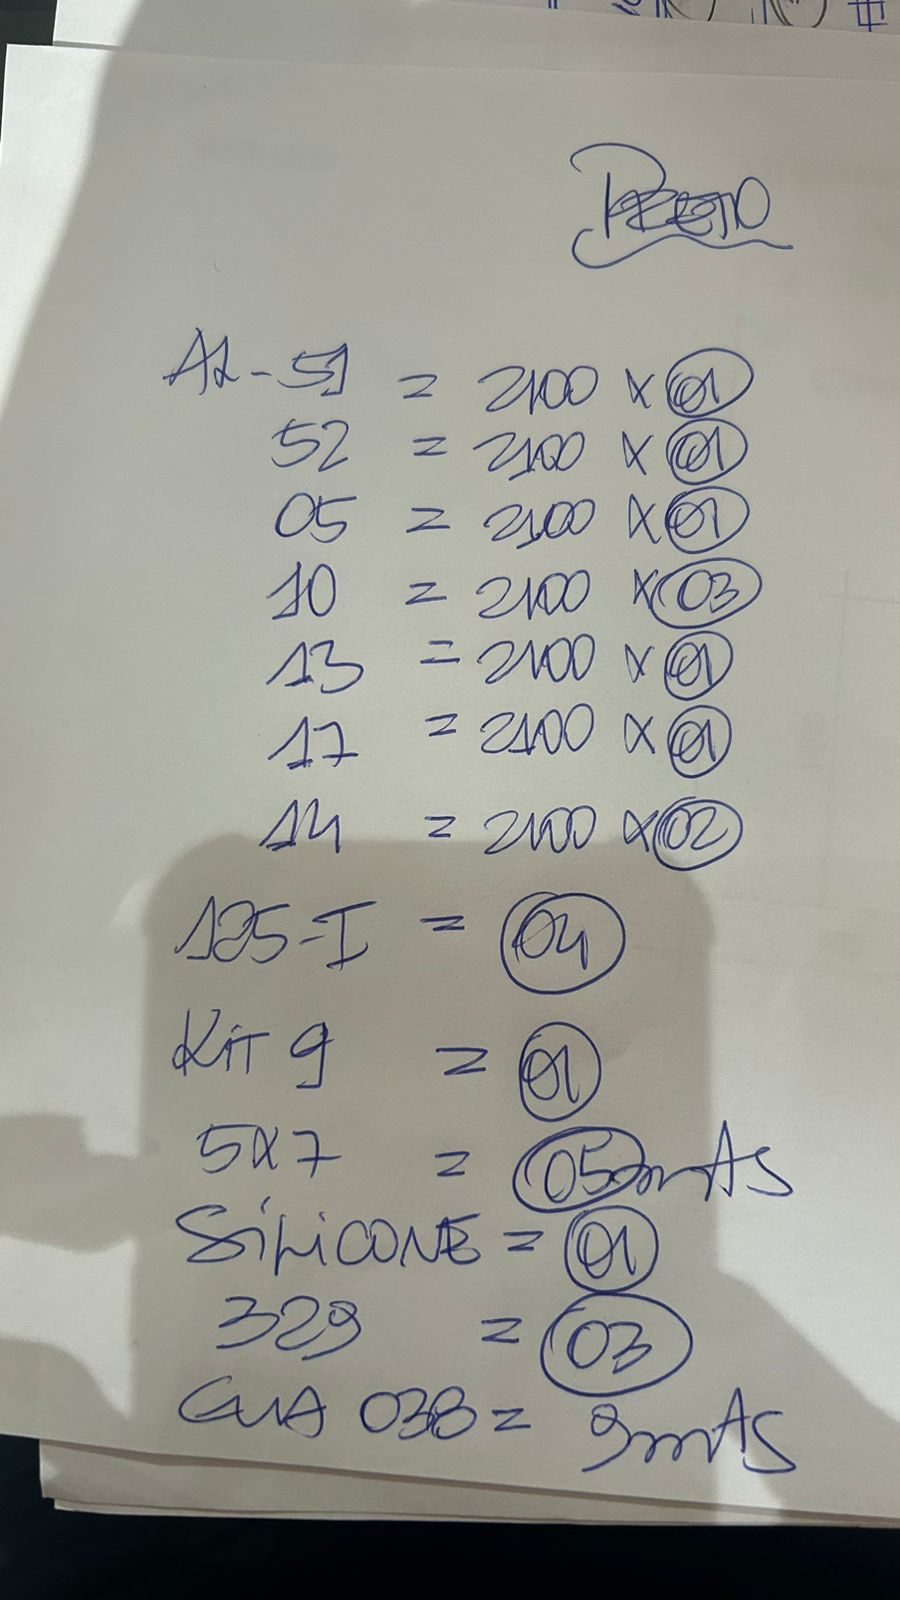 PRETO
AL-51 = 2100 x 01
52 = 2100 x 01
05 = 2100 x 01
10 = 2100 x 03
13 = 2100 x 01
17 = 2100 x 01
14 = 2100 x 02
125-I = 04
KIT 9 = 01
5x7 = 05 mts
SiLiCONE = 01
329 = 03
GUA 038 = 9 mts